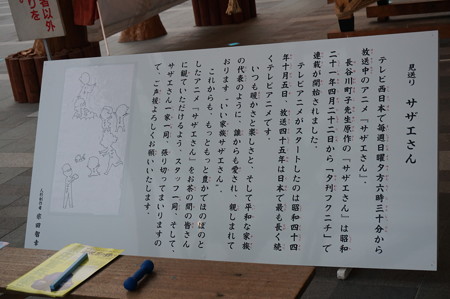 見送り　サザエさん
テレビ西日本で毎週日曜夕方六時三十分から
放送中のアニメ「サザエさん」は昭和
長谷川町子先生原作の「サザエさん」は昭和
二十一年四月二十二日から「夕刊フクニチ」で
連載が開始されました。
テレビアニメがスタートしたのは昭和四十四
年十月五日、放送四十五年は日本で最も長く続
くテレビアニメです。
いつも暖かさと楽しさと、そして平和な家族
の代表のように、誰からも愛され、親しまれて
おります。"いい家族サザエさん"。
これからも、もっともっと豊かでほのぼのと
したアニメ「サザエさん」をお茶の間の皆さん
に観ていただけるよう、スタッフ一同、そして、
サザエさん一家一同、張り切ってまいりますの
で、ご声援よろしくお願いいたします。
人形師
者以外
りを